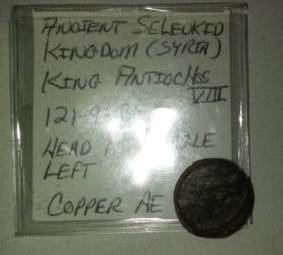 ANCIENT SELEUKID
KINGDOM (SYRIA)
KING ANTIOCHOS
VIII
121-9
HEAD
LEFT
COPPER AE